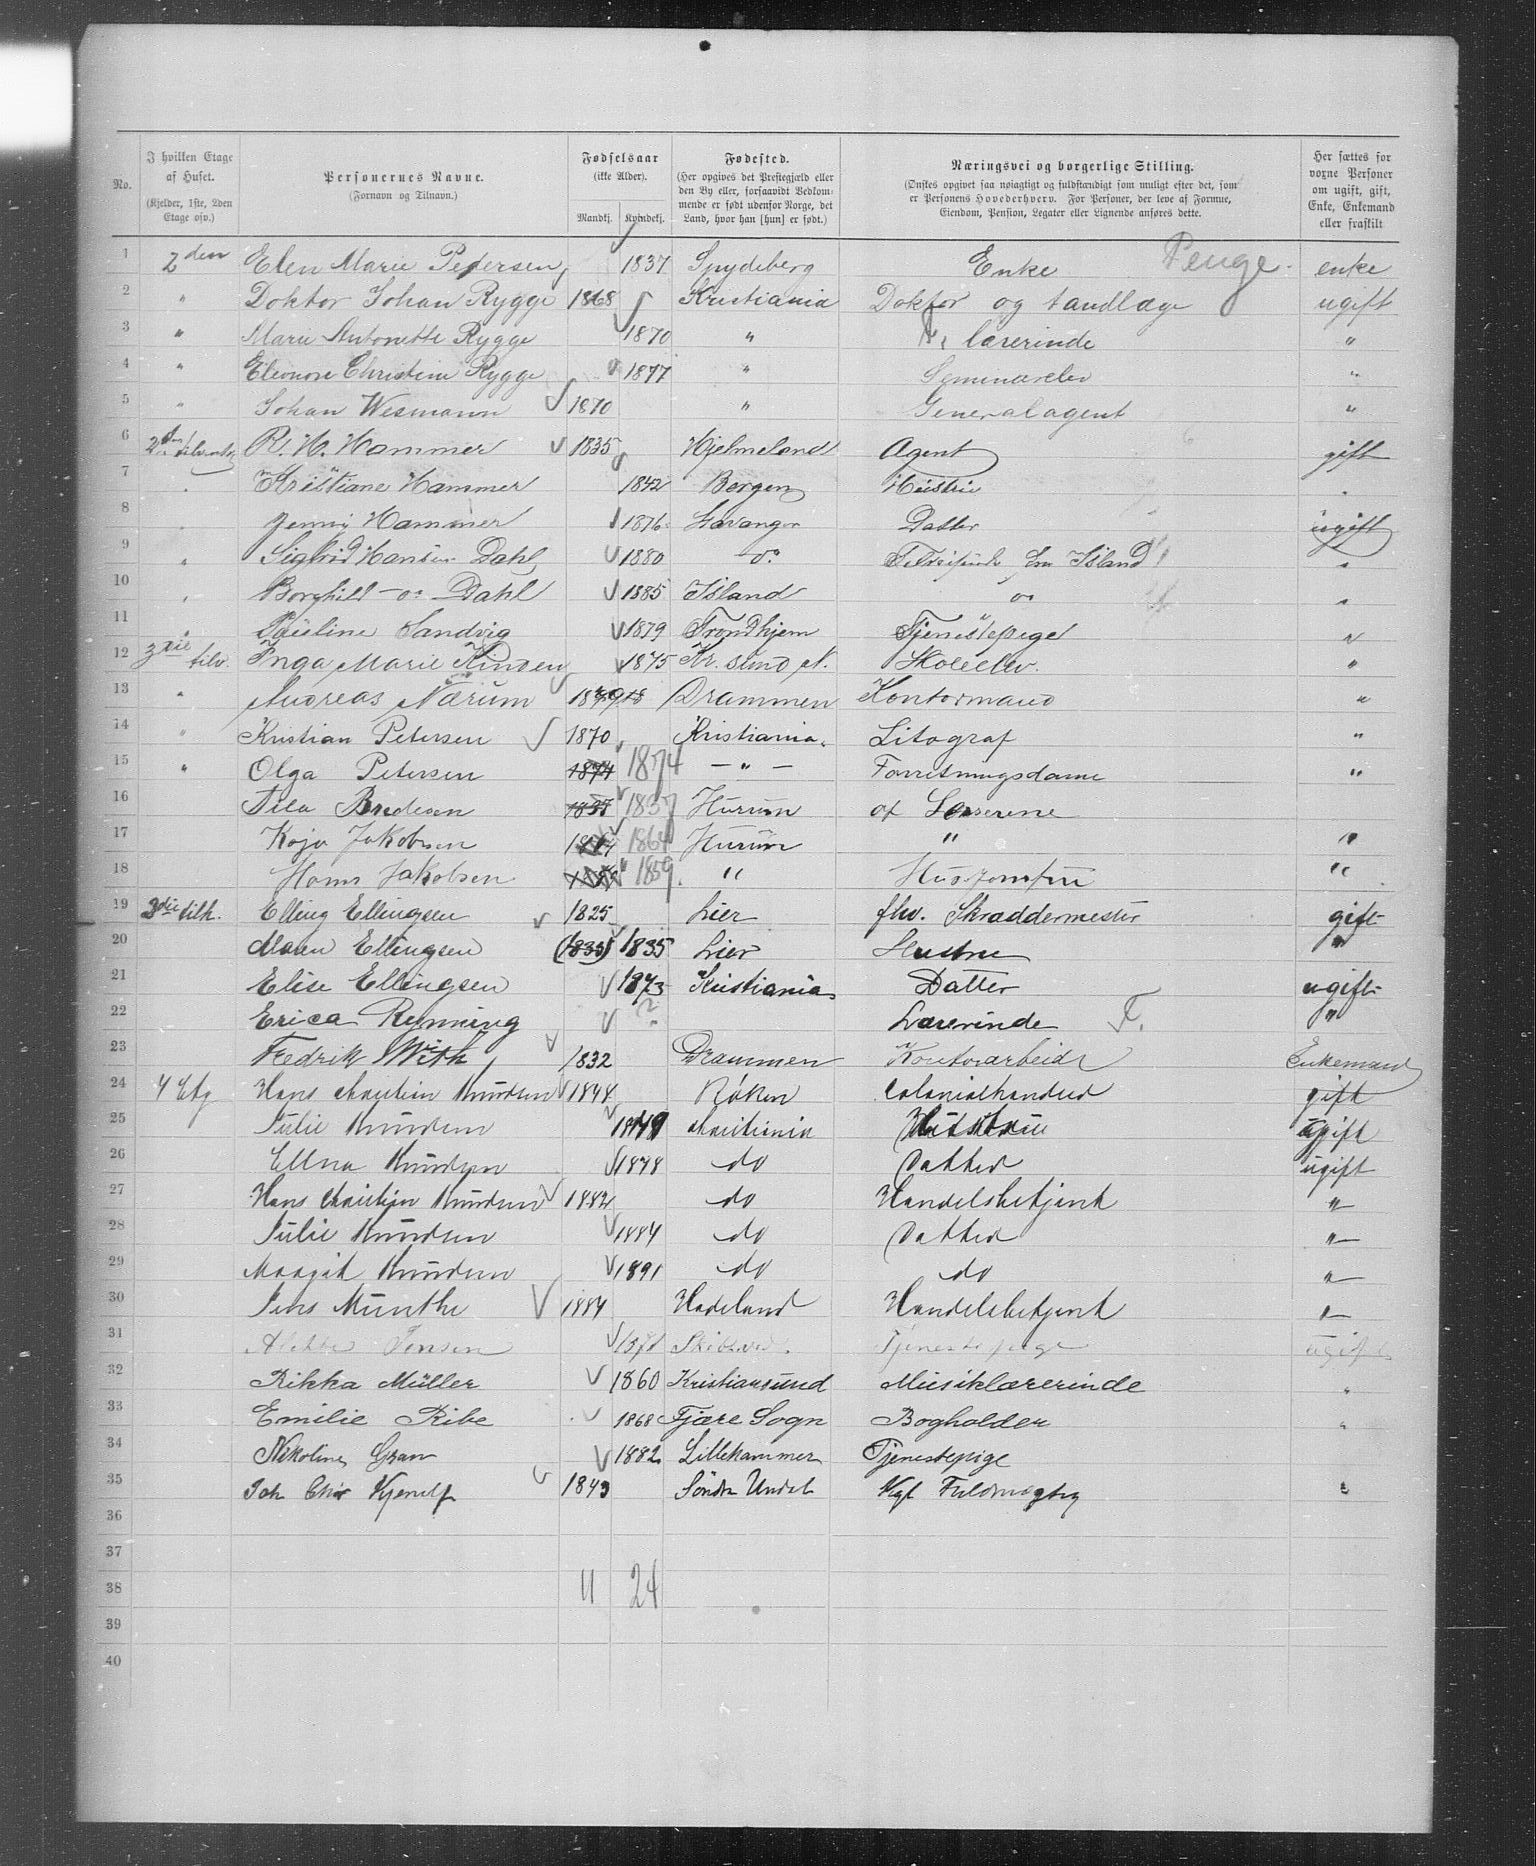 No.
I hvilken Etage af Huset.
(Kjelder, 1ste, 2den Etage osv.)
Personernes Navne.
(Fornavn og Tilnavn.)
Fødselsaar
(ikke Alder).
Mandkj. Kvindekj.
Fødested.
(Her opgives det Prestegjæld eller den By eller, forsaavidt Vedkommende er født udenfor Norge, det Land, hvor han [hun] er født.)
Næringsvei og borgerlige Stilling.
(Ønskes opgivet saa nøiagtigt og fuldstændigt som muligt efter det, som er Personens Hovederhverv. For Personer, der leve af Formue, Eiendom, Pension, Legater eller Lignende anføres dette.
Her sættes for voxne Personer om ugift, gift, Enke, Enkemand eller fraskilt
1 2den Elen Marie Pedersen 1837 Spydeberg Enke Penge. enke
2 " Doktor Johan Rygge 1868 Kristiania Doktor og tandlæge ugift
3 " Marie Antonette Rygge 1870 " lærerinde "
4 " Eleonore Christine Rygge 1877 " Seminarelev "
5 " Johan Wesmann 1870 " Generalagent "
6 R. H. Hammer 1835 Hjelmeland Agent gift
7 " Kristiane Hammer 1842 Bergen Hustru "
8 " Jenny Hammer 1876 Stavanger Datter ugift
9 " Sigfrid Hansen Dahl 1880 do fra Island "
10 " Borghild do Dahl 1885 Island do "
11 Pauline Sandvig 1879 Trondhjem Tjenestepige "
12 3die tilv. Inga Marie Kinden 1875 Kr. sund N. Skoleelev. "
13 " Andreas Nærum Drammen Kontormand "
14 " Kristian Petersen 1870 Kristiania. Litograf "
15 " Olga Petersen 1874 1874 — " — Forretningsdame "
16 Bredesen 1837 1837 Hurum af
17 Jakobsen 1864 Hurum " "
18 Hans Jakobsen 1859. " Husjomfru "
19 3die tilh. Elling Ellingsen 1825 Lier fhv. Skræddermester gift
20 Maren Ellingsen (1835) 1835 Lier Hustru "
21 Elise Ellingsen 1873 Kristiania. Datter ugift
22 Erica Rynning ? Lærerinde F. "
23 Fredrik With 1832 Drammen Kontorarbeide Enkemand
24 4 Etg Hans Christian Knudsen 1848 Røken Colonialhandled gift
25 Julie Knudsen 1849 Christiania Hustru gift
26 Ellna Knudsen 1878 do Datter ugift
27 Hans Christian Knudsen 1882 do Handelsbetjent "
28 Julie Knudsen 1884 do Datter "
29 Margit Knudsen 1891 do do "
30 Jens Munthe 1884 Hadeland Handelsbetjent "
31 Jensen 1871 Tjenestepige ugift
32 Rikka Müller 1860 Kristiansund Musiklærerinde "
33 Emilie Ribe 1868 Fjære Sogn Bogholder "
34 Nikoline Gran 1882 Lillehammer Tjenestepige
35 Joh Chr Kjenlf 1843 Søndre Undal Kgl Fuldmægtig "
36
37
38 11 24
39
40